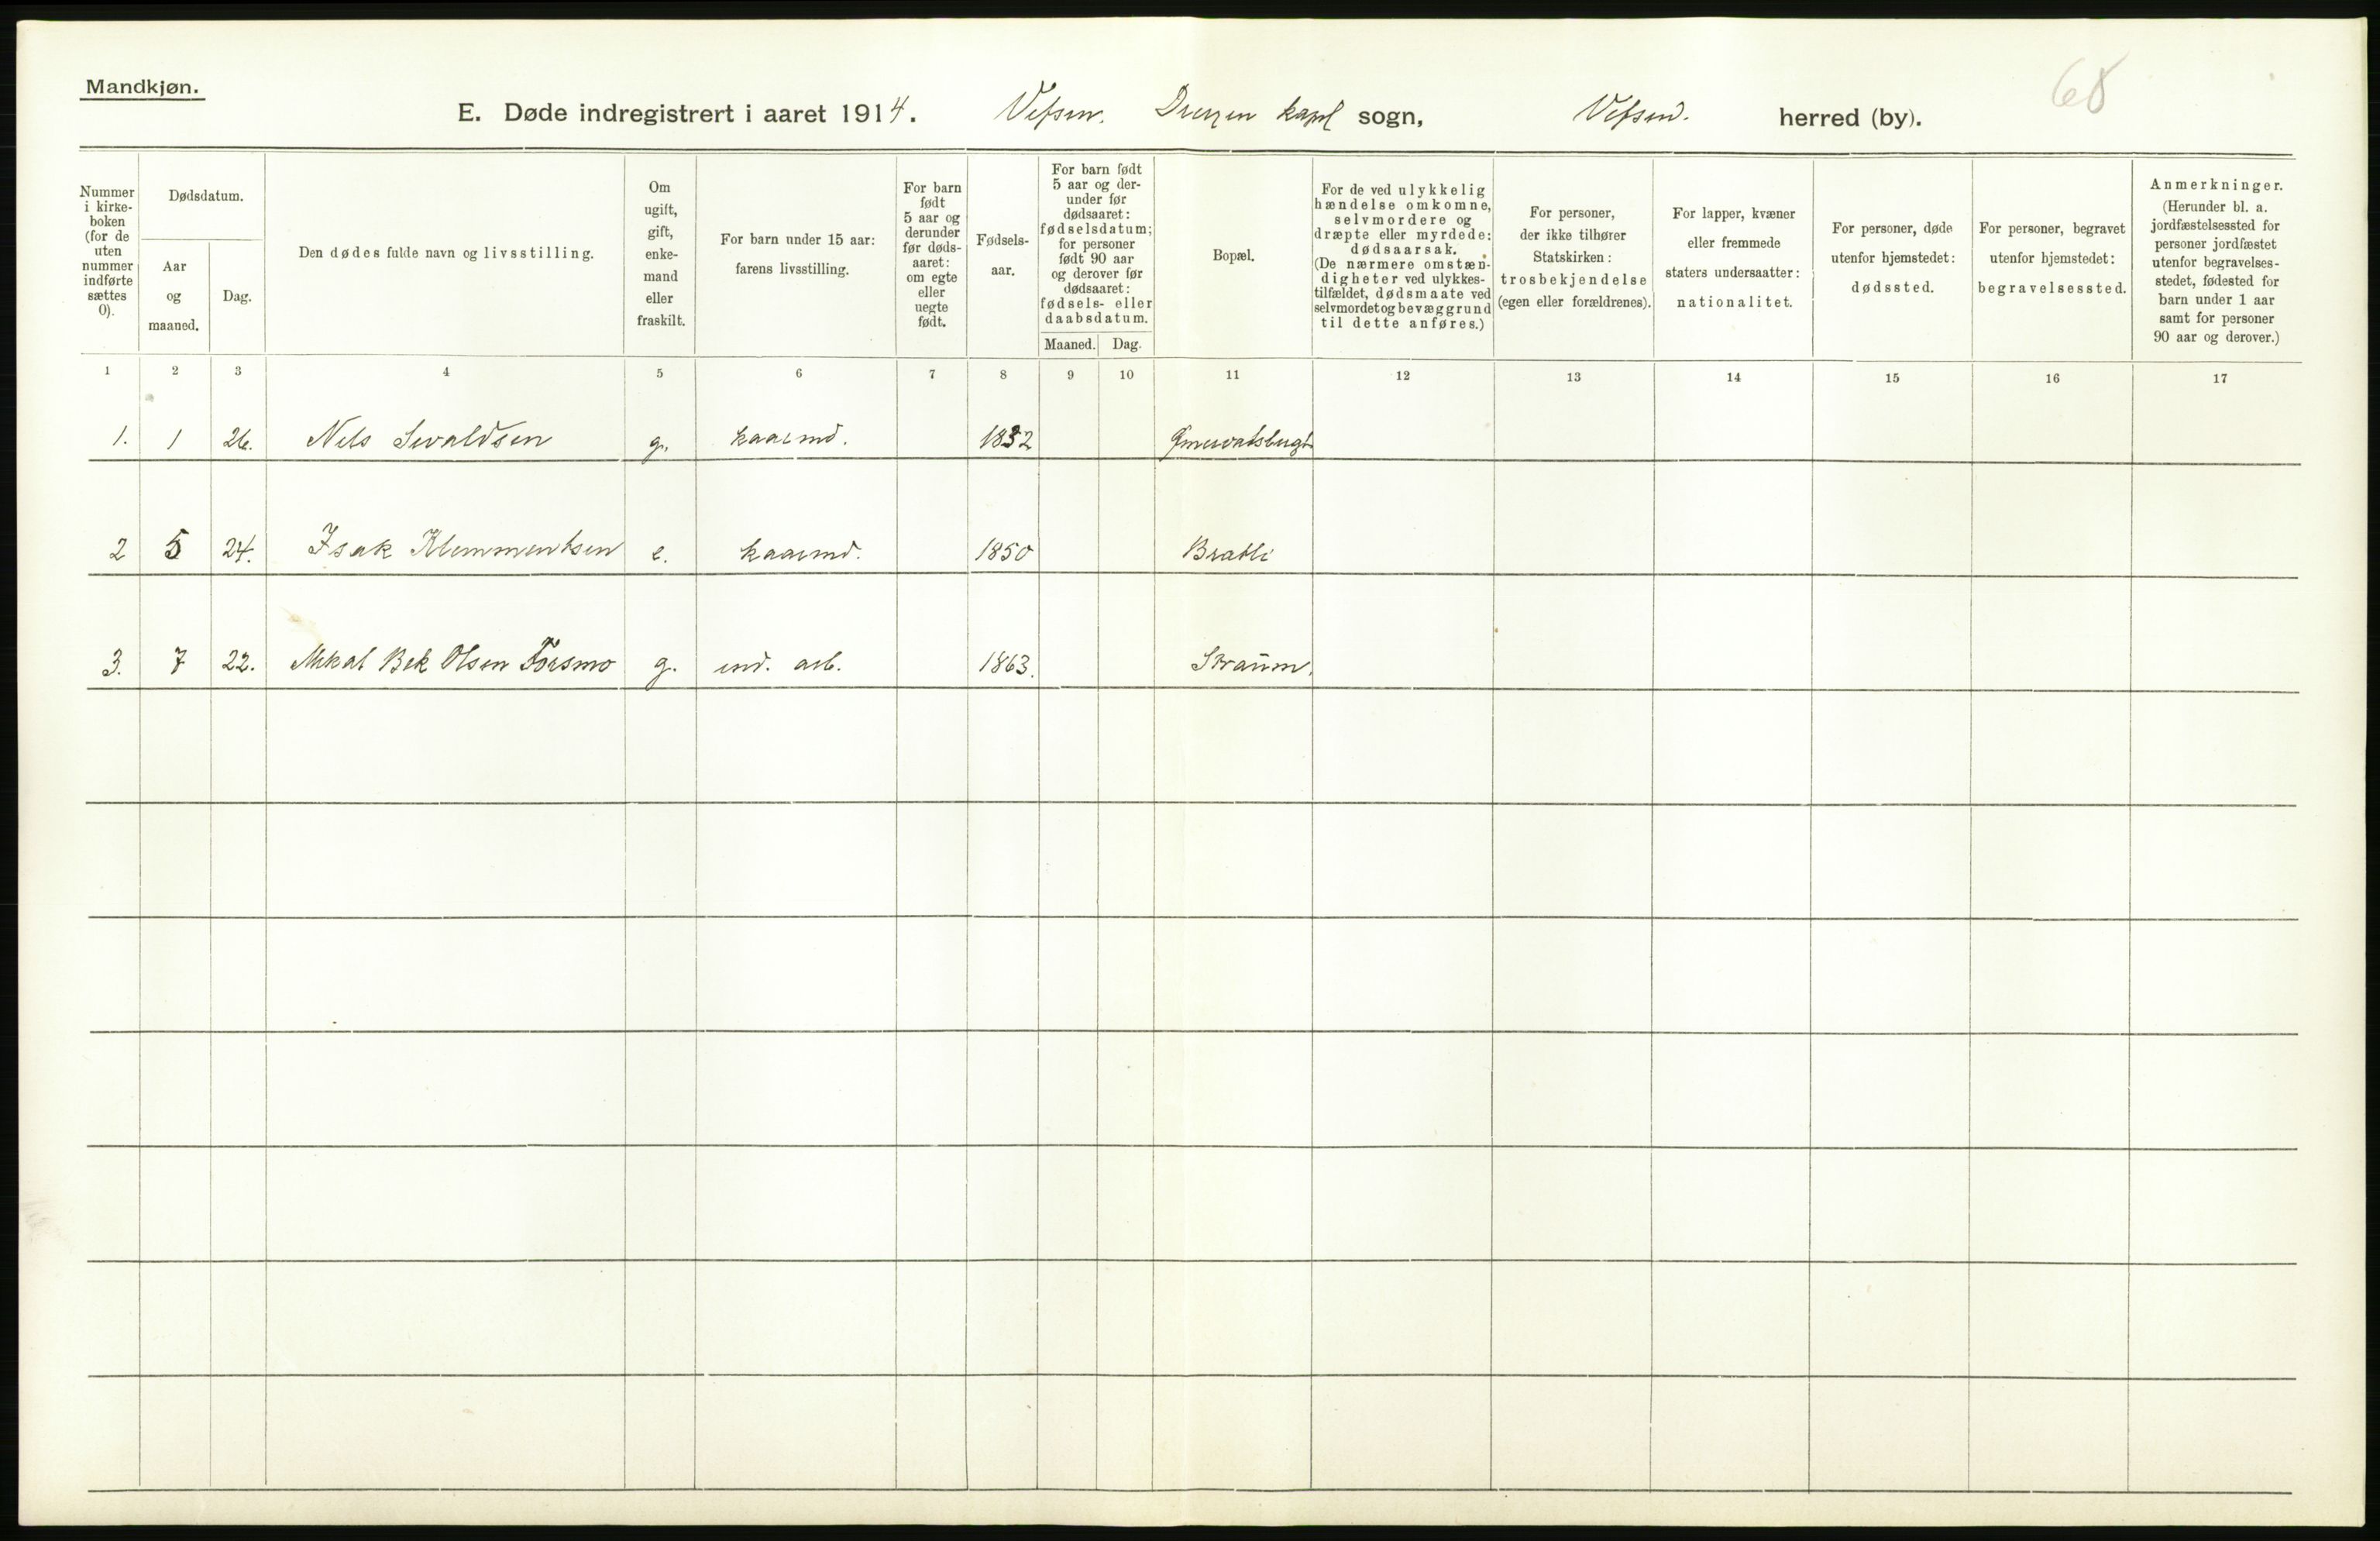 Mandkjøn.
68
E. Døde indregistrert i aaret 1914. Vefsen. kapel sogn, Vefsen. herred (by).
Nummer
i kirke-
boken
(for de
uten
nummer
indførte
sættes
0).
Dødsdatum.
Aar
og
maaned.
Dag.
Den dødes fulde navn og livsstilling.
Om
ugift,
gift,
enke-
mand
eller
fraskilt.
For barn under 15 aar:
farens livsstilling.
For barn
født
5 aar og
derunder
før døds-
aaret:
om egte
eller
uegte
født.
Fødsels-
aar.
For barn født
5 aar og der-
under før
dødsaaret:
fødselsdatum;
for personer
født 90 aar
og derover før
dødsaaret:
fødsels- eller
daabsdatum.
Maaned. Dag.
Bopæl.
For de ved ulykkelig
hændelse omkomne,
selvmordere og
dræpte eller myrdede:
dødsaarsak.
(De nærmere omstæn-
digheter ved ulykkes-
tilfældet, dødsmaate ved
selvmordet og bevæggrund
til dette anføres.)
For personer,
der ikke tilhører
Statskirken:
trosbekjendelse
(egen eller forældrenes).
For lapper, kvæner
eller fremmede
staters undersaatter:
nationalitet.
For personer, døde
utenfor hjemstedet:
dødssted.
For personer, begravet
utenfor hjemstedet:
begravelsessted.
Anmerkninger.
(Herunder bl. a.
jordfæstelsessted for
personer jordfæstet
utenfor begravelses-
stedet, fødested for
barn under 1 aar
samt for personer
90 aar og derover.)
1 2 3 4 5 6 7 8 9 10 11 12 13 14 15 16 17
1. 1 26. Nils Sivaldsen g. kaarmd. 1832
2 5 24. Isak Klemmentsen e. kaarmd. 1850 Bratli
3. 7 22. Mikal Bek Olsen Forsmo g. ind. arb. 1863. Straum.